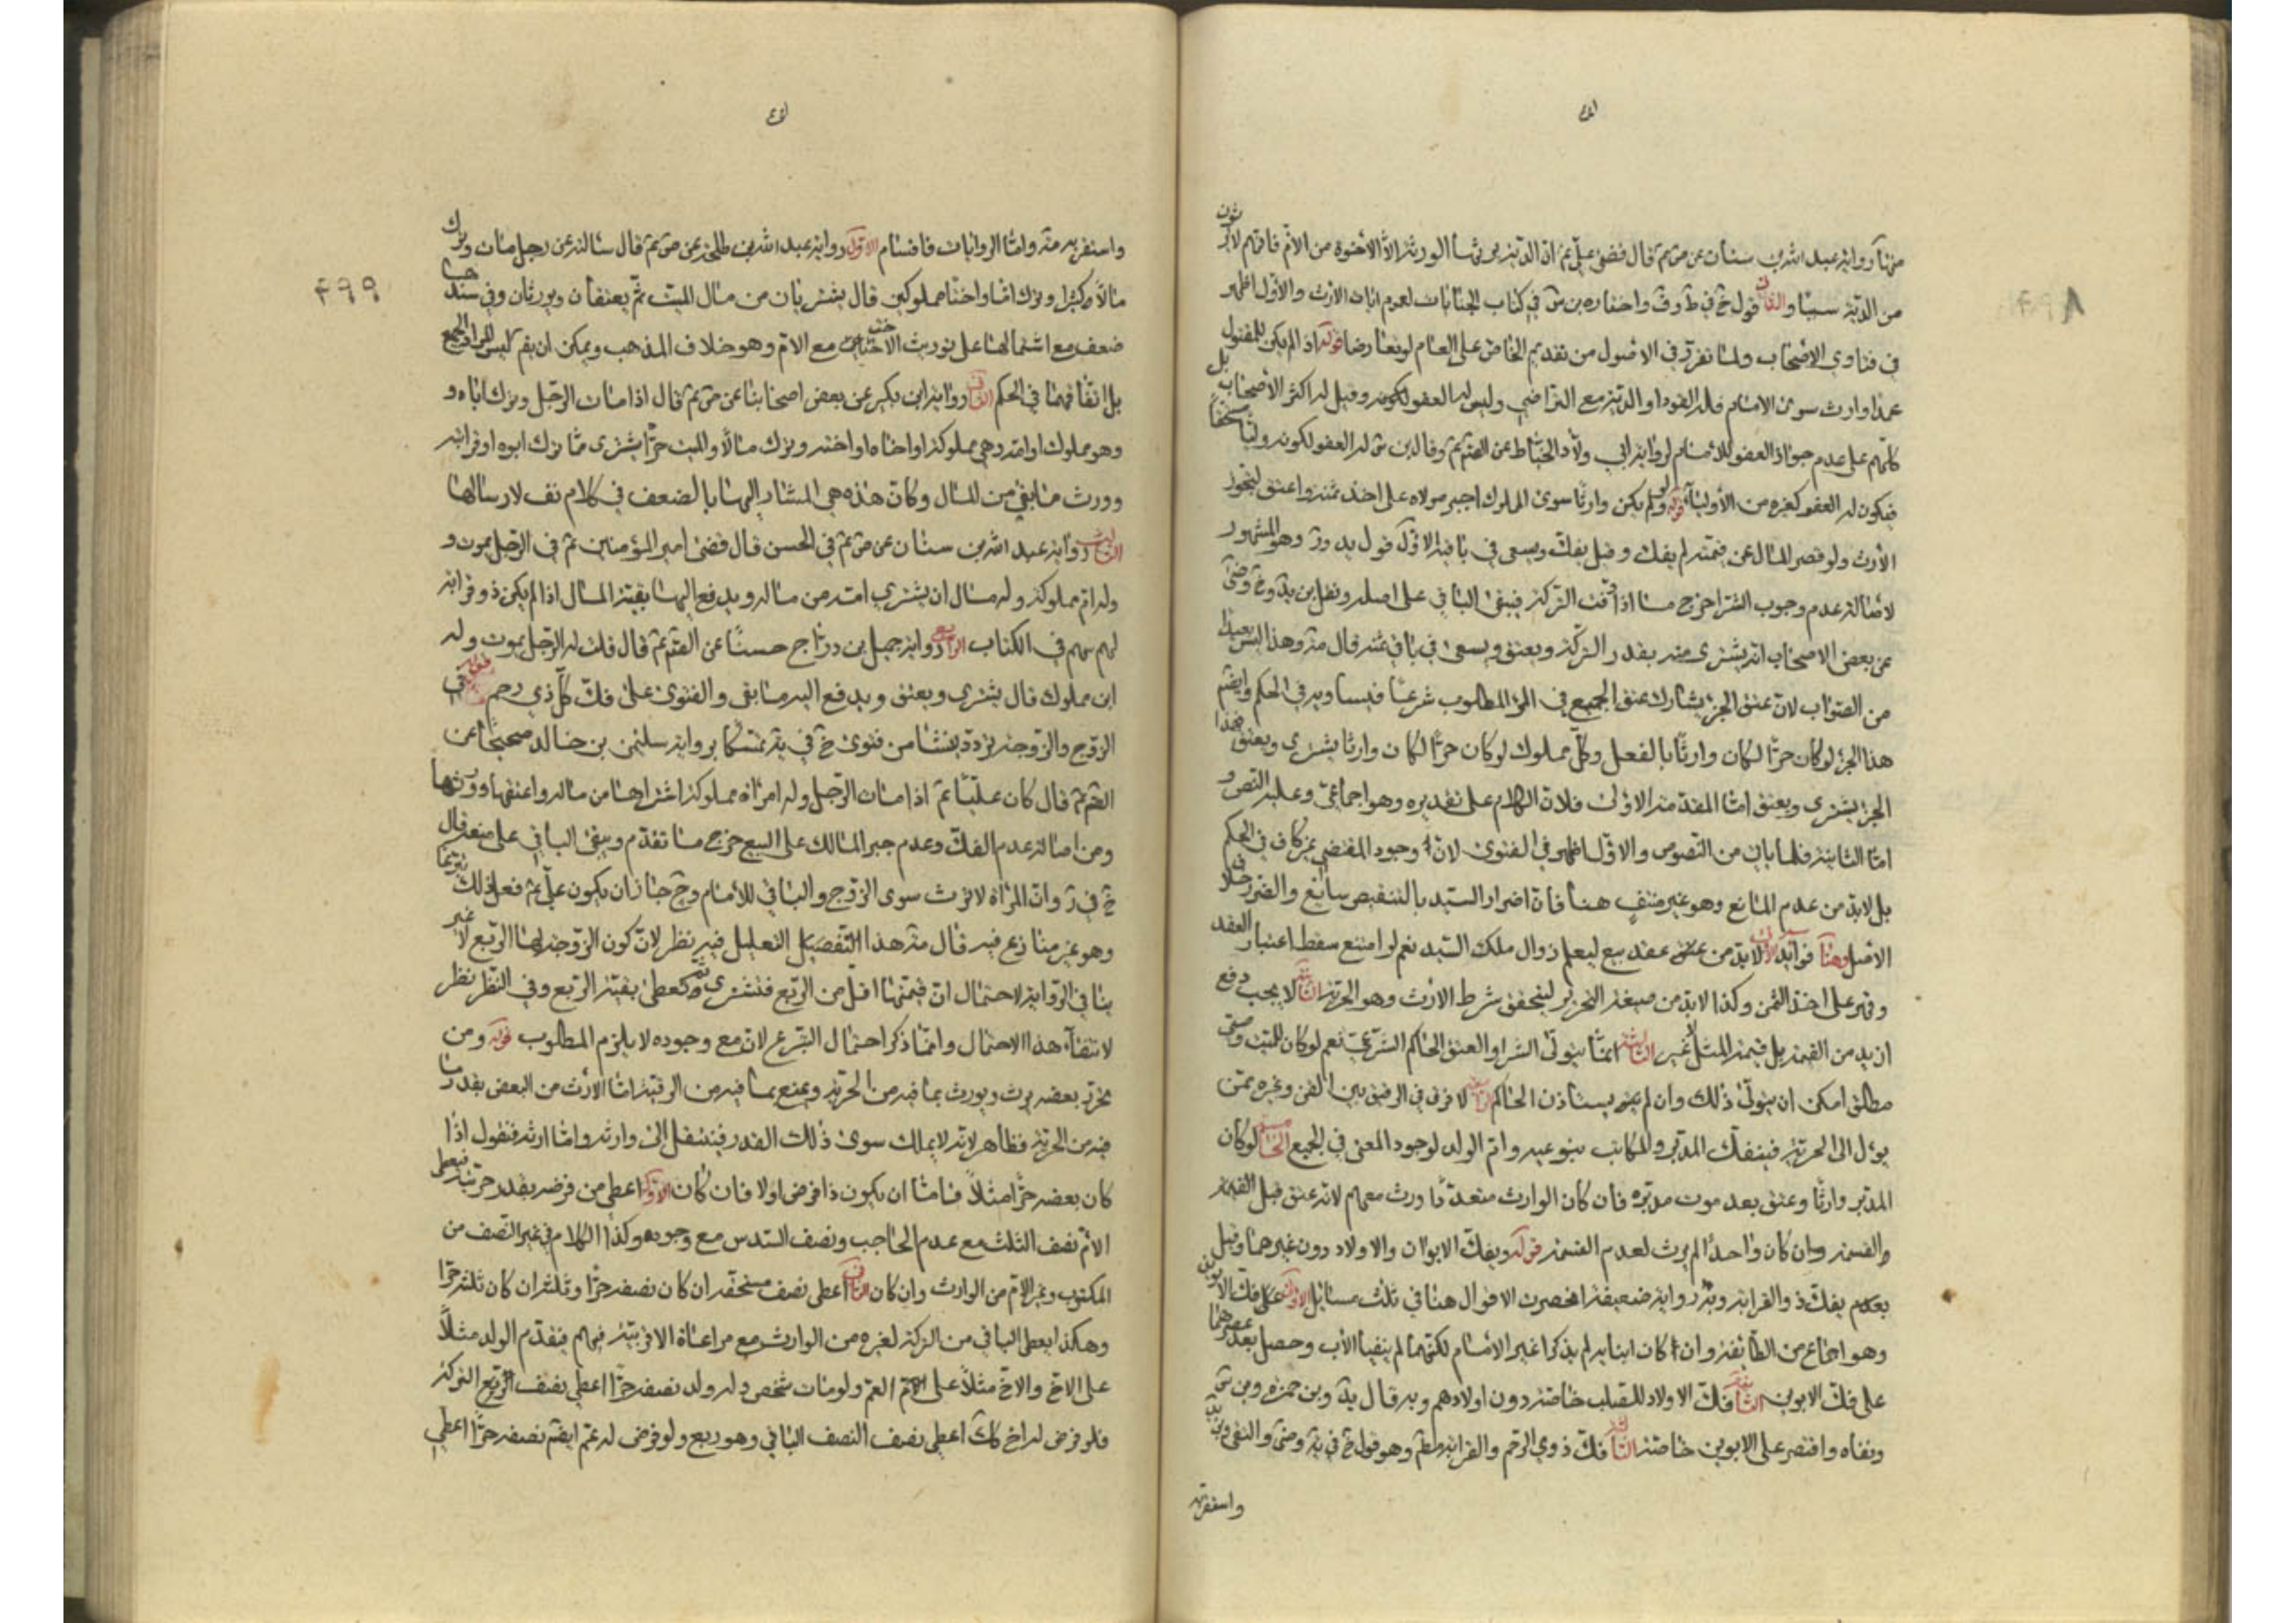 منها رواية عبد الله بن سنان عن ص ع قال قضى علي ع ان الدية يرثها الورثة الا الاخوة من الام فانهم لا يرثون
من الدية شيئا والثاني قول خ في ط وف واختاره بن س في كتاب الجنايات لعموم ايات الارث والاول اظهر
في فتاوي الاصحاب ولما تقرر في الاصول من تقديم الخاص على العام لو تعارضا قوله اذا لم يكن للمقتول
عمدا وارث سوى الامام فله القود او الدية مع التراضي وليس له العفو وقيل له اكثر الاصحاب بل
كلهم على عدم جواز العفو للامام لرواية ابي ولاد الحناط عن الصم ع وقال بن س له العفو لكونه وليا مستحقا
فيكون له العفو كغيره من الاولياء قوله ولو لم يكن وارثا سوى المملوك اجبر مولاه على اخذ ثمنه واعتق ليحوز
الارث ولو قصر المال عن قيمته لم يفك وقيل يفك ويسعى في باقيه الاول قول يد ور وهو المشهور
لاصالة عدم وجوب الشرا خرج ما اذا وفت التركة فيبقى الباقي على اصله ونقل بن يد وخ وض
عن بعض الاصحاب انه يشترى منه بقدر التركة ويعتق ويسعى في باقي ثمنه قال مة وهذا ليس بعيدا
من الصواب لان عتق الجزء يشارك عتق الجميع في الامر المطلوب شرعا فيساويه في الحكم وايضا
هذا الجزء لو كان حرا لكان وارثا بالفعل وكل مملوك لو كان حرا لكان وارثا يشترى ويعتق فهذا
الجزء يشترى ويعتق اما المقدمة الاولى فلان الكلام على تقديره وهو اجماعي وعليه النصوص
اما الثانية فلما ياتي من النصوص والاول اظهر في الفتوى لان وجود المقتضي غير كاف في الحكم
بل لابد من عدم المانع وهو غير منتف هنا فان اضرار السيد بالتنقيص سائغ والضرر خلاف
الاصل وهنا فوايد الاولى لابد من عقد بيع ليعلم زوال ملك السيد نعم لو امتنع سقط اعتبار العقد
وقهر على اخذ الثمن وكذا لابد من صيغة التحرير ليتحقق شرط الارث وهو الحرية الثانية لا يجب دفع
ازيد من القيمة بل قيمة المثل لا غير الثالثة انما يتولى الشرا والعتق الحاكم الشرعي نعم لو كان للميت وصي
مطلق امكن ان يتولى ذلك وان لم يستاذن الحاكم الرابعة لا فرق في الرقيق بين القن وغيره ممن
يؤل الى الحرية فينفك المدبر والمكاتب بنوعيه وام الولد لوجود المعنى في الجميع الخامسة لو كان
المدبر وارثا وعتق بعد موت مدبره فان كان الوارث متعددا ورث معهم لانه عتق قبل القسمة
والقسمة وان كان واحدا لم يرث لعدم القسمة قوله ويفك الابوان والاولاد دون غيرهما وقيل
يفك ذو القرابة وبه رواية ضعيفة انحصرت الاقوال هنا في ثلث مسائل الاولى على فك الابوين
وهو اجماع من الطائفة وان كان ابنا بابويه لم يذكرا غير الامام لكنهما لم ينفيا الاب وحصل بعد عصرهما
على فك الابوين الثانية فك الاولاد للصلب خاصة دون اولادهم وبه قال يد وبن حمزة وبن س
ونفاه واقتصر على الابوين خاصة الثالثة فك ذوي الرحم والقرابة مطم وهو قول خ في ية وض والتقي وبن
واستقربه
واستقربه مة واما الروايات فاقسام الاول رواية عبد الله بن طلحة عن ص ع قال سالته عن رجل مات وترك
مالا كثيرا وترك اما واختا مملوكتين قال يشتريان من مال الميت ثم يعتقان ويورثان وفي سندها
ضعف مع اشتمالها على توريث الاخت مع الام وهو خلاف المذهب ويمكن ان يقم ليس المراد الجمع
بل اتفاقهما في الحكم الثاني رواية ابن بكير عن بعض اصحابنا عن ص ع قال اذا مات الرجل وترك اباه و
وهو مملوك او امه وهي مملوكة او اخاه او اخته وترك مالا والميت حر اشترى مما ترك ابوه او قرابته
وورث ما بقي من المال وكان هذه هي المشار اليها بالضعف في كلام نف لارسالها
الثالث رواية عبد الله بن سنان عن ص ع في الحسن قال قضى امير المؤمنين ع في الرجل يموت و
وله ام مملوكة وله مال ان يشتري امه من ماله ويدفع اليها بقية المال اذا لم يكن ذو قرابة
لهم سهم في الكتاب الرابع رواية جميل بن دراج حسنا عن الصم ع قال قلت له الرجل يموت وله
ابن مملوك قال يشترى ويعتق ويدفع اليه ما بقى والفتوى على فك كل ذي رحم قوله وفي
الزوج والزوجة تردد ينشا من فتوى خ في ية متمسكا برواية سليمن بن خالد صحيحا عن
الصم ع قال كان علي ع اذا مات الرجل وله امراة مملوكة اشتراها من ماله واعتقها وورثها
ومن اصالة عدم الفك وعدم جبر المالك على البيع خرج ما تقدم ويبقى الباقي على منعه قال
خ في ر وان المراة لا ترث سوى الربع والباقي للامام وح جاز ان يكون علي ع فعل ذلك تبرعا
وهو غير منازع فيه قال مة هذا التعليل فيه نظر لان كون الزوجة لها الربع لا غير
ينافي الرواية لاحتمال ان قيمتها اقل من الربع فتشترى ثم تعطى بقية الربع وفي النظر نظر
لانتفاء هذا الاحتمال وانما ذكر احتمال التبرع لان مع وجوده لا يلزم المطلوب قوله ومن
تحرر بعضه يرث ويورث بما فيه من الحرية ويمنع بما فيه من الرقية اما الارث من البعض بقدر ما
فيه من الحرية فظاهر لانه لا يملك سوى ذلك القدر فينتقل الى وارثه واما ارثه فنقول اذا
كان بعضه حرا مثلا فاما ان يكون ذا فرض اولا فان كان الاول اعطي من فرضه بقدر حريته فيعطى
الام نصف الثلث مع عدم الحاجب ونصف السدس مع وجوده وكذا الكلام في غير النصف من
المكتوب وغير الام من الوارث وان كان الثاني اعطي نصف مستحقه ان كان نصفه حرا وثلثه ان كان ثلثه حرا
وهكذا يعطى الباقي من التركة لغيره من الوارث مع مراعاة الاقربية فيهم فيقدم الولد مثلا
على الاخ والاخ مثلا على العم ولو مات شخص وله ولد نصفه حر اعطي نصف التركة
فلو فرض له اخ كك اعطي نصف النصف الباقي وهو ربع ولو فرض له عم ايضا نصفه حر اعطي
٤٩٩